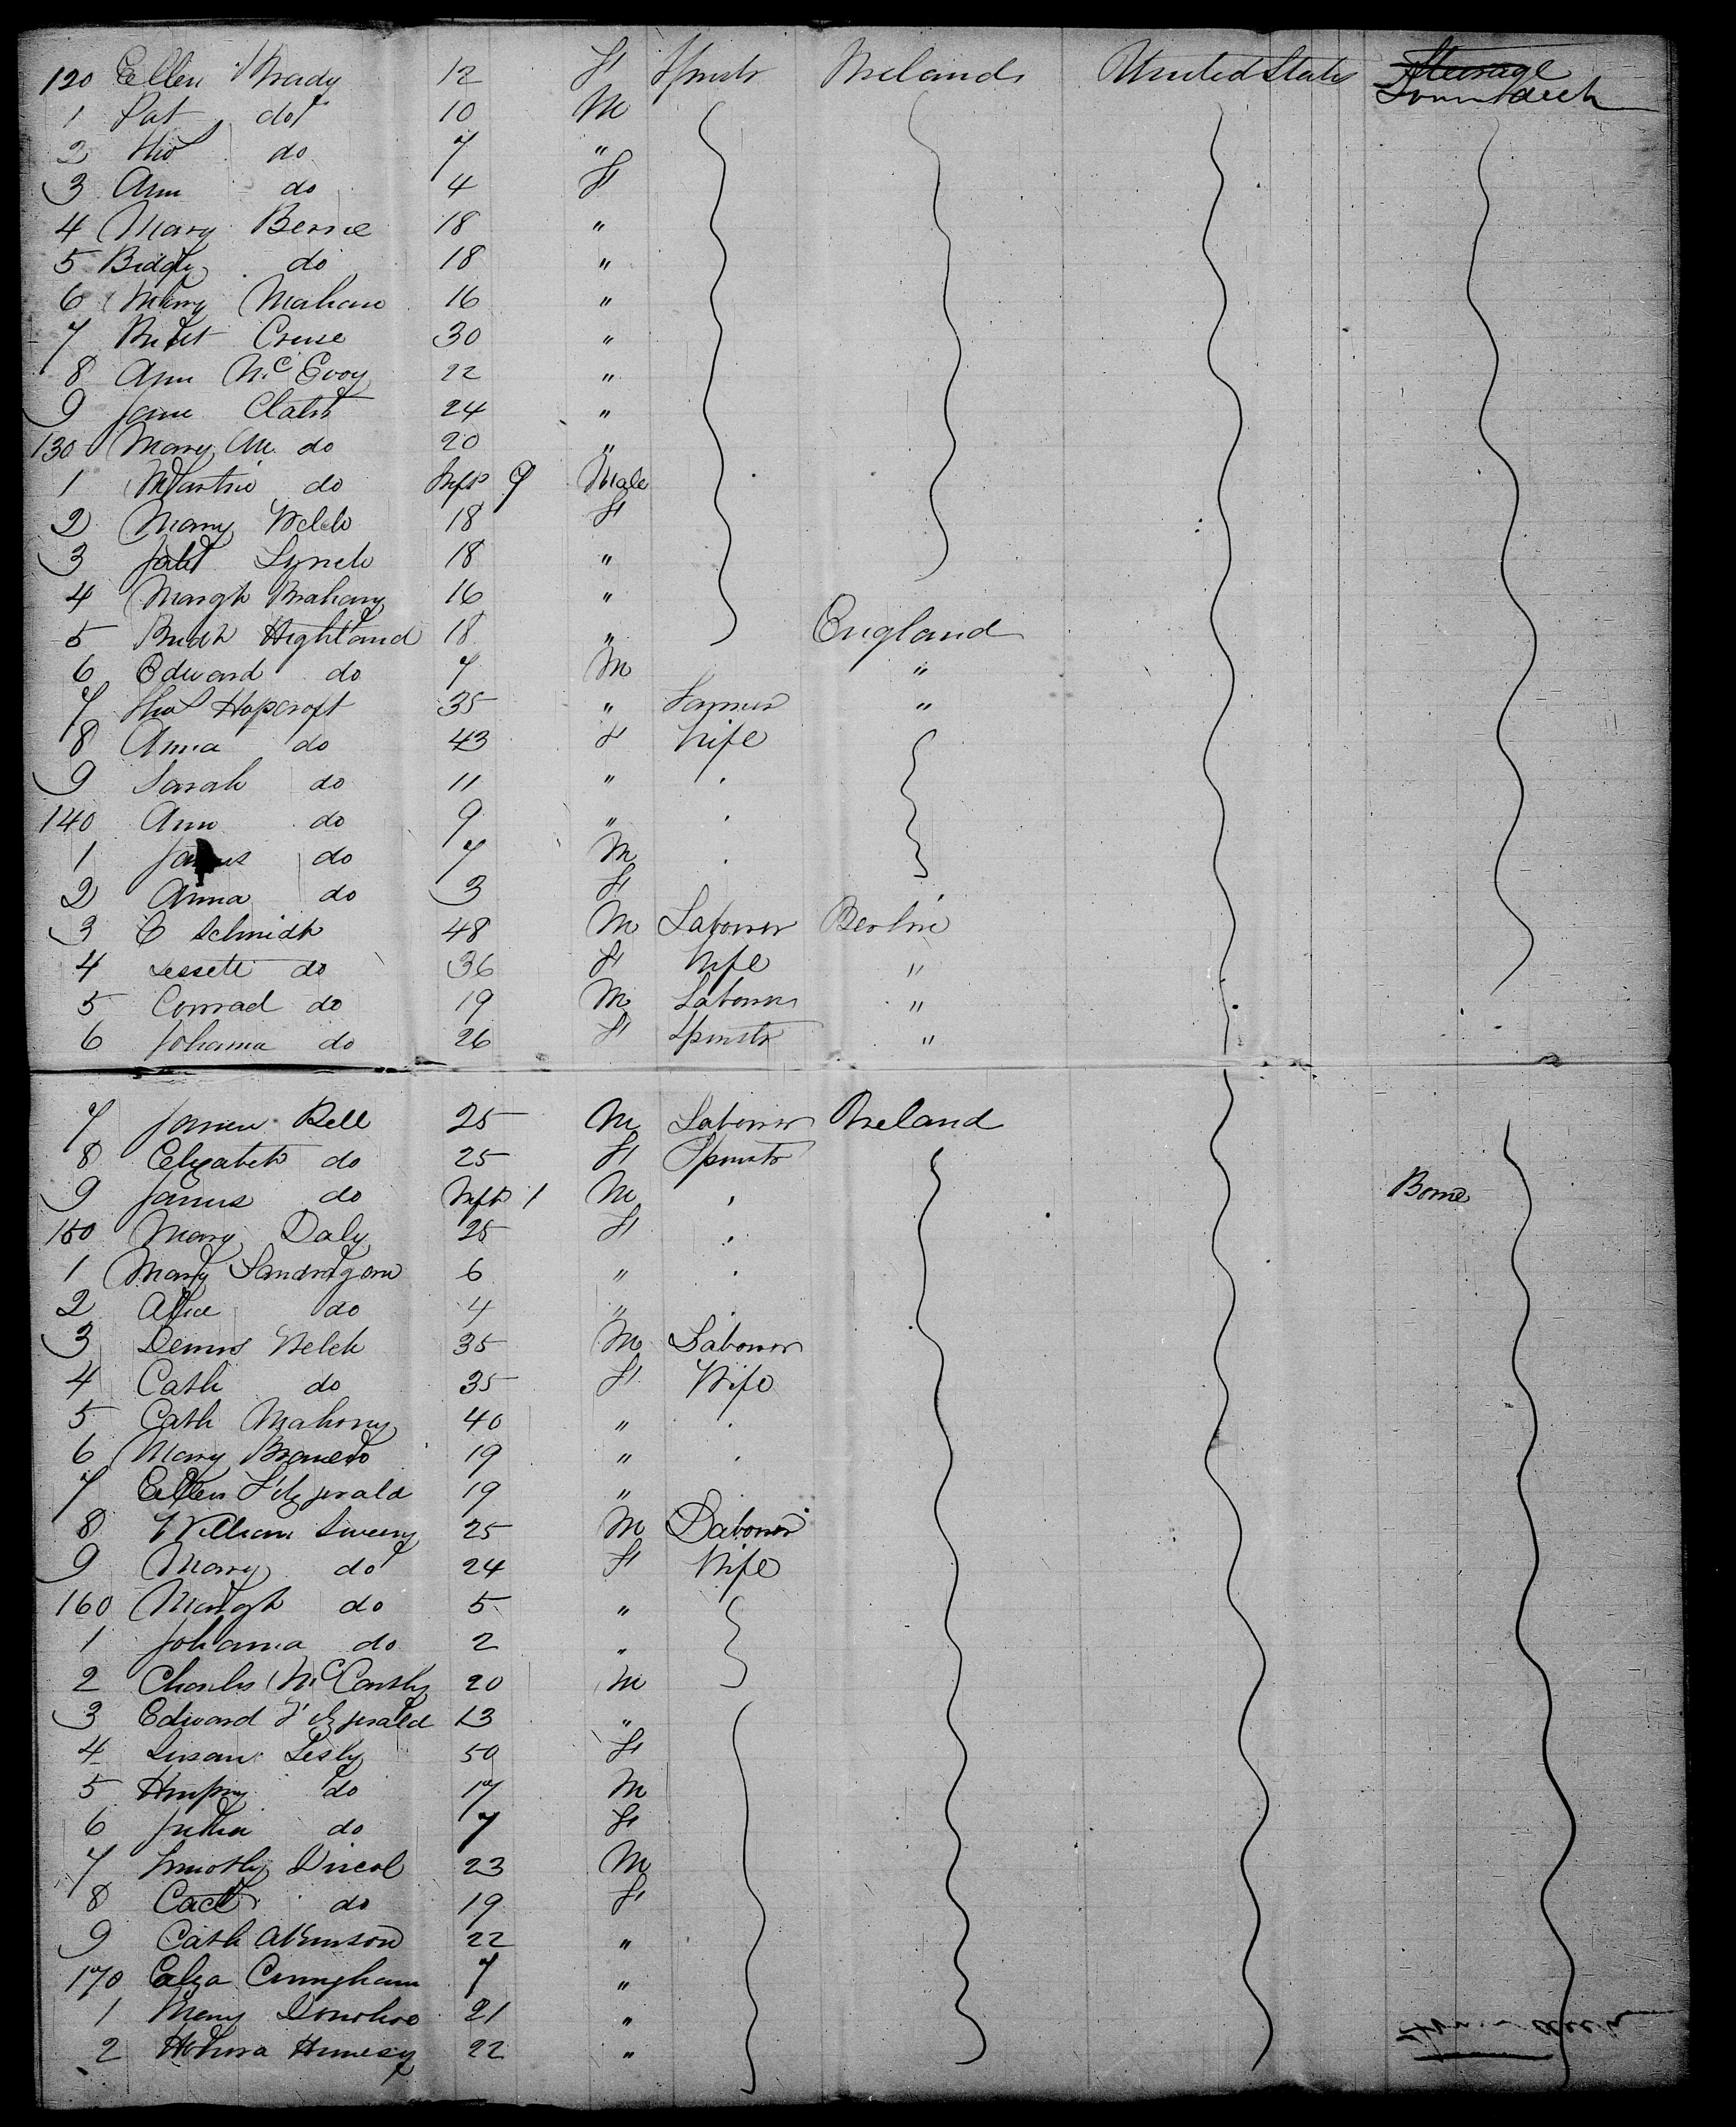 120 Ellen Brady 12 F Spinstr Ireland United States Steerage
Lower deck
1 Pat do 10 M
2 Tho do 7 "
3 Ann do 4 F
4 Mary 18 "
5 Bidgty do 18 "
6 Mary Mahan 16 "
7 Cruise 30 "
8 Ann McEvoy 22 "
9 Jane 24 "
130 Mary An do 20 "
1 Martin do Inft 9 Male
2 Mary Welch 18 F
3 Lynch 18 "
4 Margt 16 "
5 Highland 18 " England
6 Edward do 7 M "
7 Thos Hopcroft 35 " Farmer "
8 Anna do 43 F Wife
9 Sarah do 11 "
140 Ann do 9 "
1 James do 7 M
2 Anna do 3 F
3 C Schmidt 48 M Laborer Berlin
4 Lessett do 36 F Wife "
5 Conrad do 19 M Laborer "
6 Johanna do 26 F Spinstr "
7 James Bell 25 M Laborer Ireland
8 Elizabeth do 25 F Spinstr
9 James do Inft 1 M Born
150 Mary Daly 25 F
1 Mary 6 "
2 Alice do 4 "
3 Dennis Welch 35 M Laborer
4 Cath do 35 F Wife
5 Cath Mahony 40 "
6 Mary 19 "
7 Ellen Fitzgerald 19 "
8 William Sweeny 25 M Laborer
9 Mary do 24 F Wife
160 Margt do 5 "
1 Johanna do 2 "
2 Charles McCarthy 20 M
3 Edward Fitzgerald 13 "
4 Susan Lesly 50 F
5 do 17 M
6 Julia do 7 F
7 Timothy Driscol 23 M
8 do 19 F
9 Cath Atkinson 22 "
170 Eliza Cuningham 7 "
1 Mary Donohoe 21 "
2 Honora 22 "